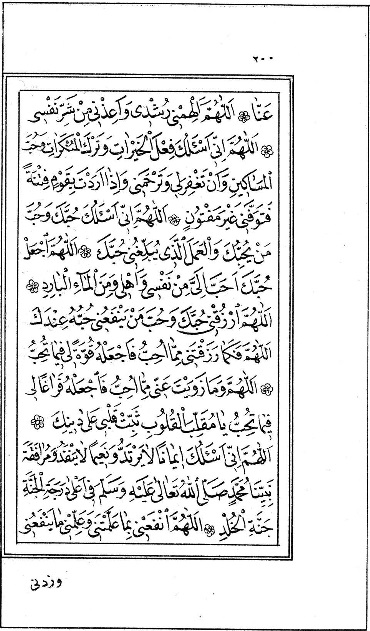 ٢٠٠
عَنَّا ۞ اَللّٰهُمَّ اَلْهِمْنِى رُشْدِى وَاَعِذْنِى مِنْ شَرِّ نَفْسِى
۞ اَللّٰهُمَّ اِنِّى اَسْئَلُكَ فِعْلَ الْخَيْرَاتِ وَتَرْكَ الْمُنْكَرَاتِ وَحُبَّ
الْمَسَاكِينِ وَاَنْ تَغْفِرَلِى وَتَرْحَمَنِى وَاِذَا اَرَدْتَ بِقَوْمٍ فِتْنَةً
فَتَوَفَّنِى غَيْرَ مَفْتُونٍ ۞ اَللّٰهُمَّ اِنِّى اَسْئَلُكَ حُبَّكَ وَحُبَّ
مَنْ يُحِبُّكَ وَالْعَمَلَ الَّذِى يُبَلِّغُنِى حُبَّكَ ۞ اَللّٰهُمَّ اجْعَلْ
حُبَّكَ اَحَبَّ اِلَىَّ مِنْ نَفْسِى وَاَهْلِى وَمِنَ الْمَاءِ الْبَارِدِ ۞
اَللّٰهُمَّ ارْزُقْنِى حُبَّكَ وَحُبَّ مَنْ يَنْفَعُنِى حُبُّهُ عِنْدَكَ
اَللّٰهُمَّ فَكَمَا رَزَقْتَنِى مِمَّا اُحِبُّ فَاجْعَلْهُ قُوَّةً لِى فِيمَا تُحِبُّ
۞ اَللّٰهُمَّ وَمَا زَوَيْتَ عَنِّى مِمَّا اُحِبُّ فَاجْعَلْهُ فَرَاغًا لِى
فِيمَا تُحِبُّ يَا مُقَلِّبَ الْقُلُوبِ ثَبِّتْ قَلْبِى عَلٰى دِينِكَ ۞
اَللّٰهُمَّ اِنِّى اَسْئَلُكَ اِيمَانًا لَا يَرْتَدُّ وَنَعِيمًا لَا يَنْفَدُ وَمُرَافَقَةَ
نَبِيِّنَا مُحَمَّدٍ صَلَّى اللهُ تَعَالٰى عَلَيْهِ وَسَلَّمَ فِى اَعْلٰى دَرَجَةِ الْجَنَّةِ
جَنَّةِ الْخُلْدِ ۞ اَللّٰهُمَّ انْفَعْنِى بِمَا عَلَّمْتَنِى وَعَلِّمْنِى مَا يَنْفَعُنِى
وزدنى